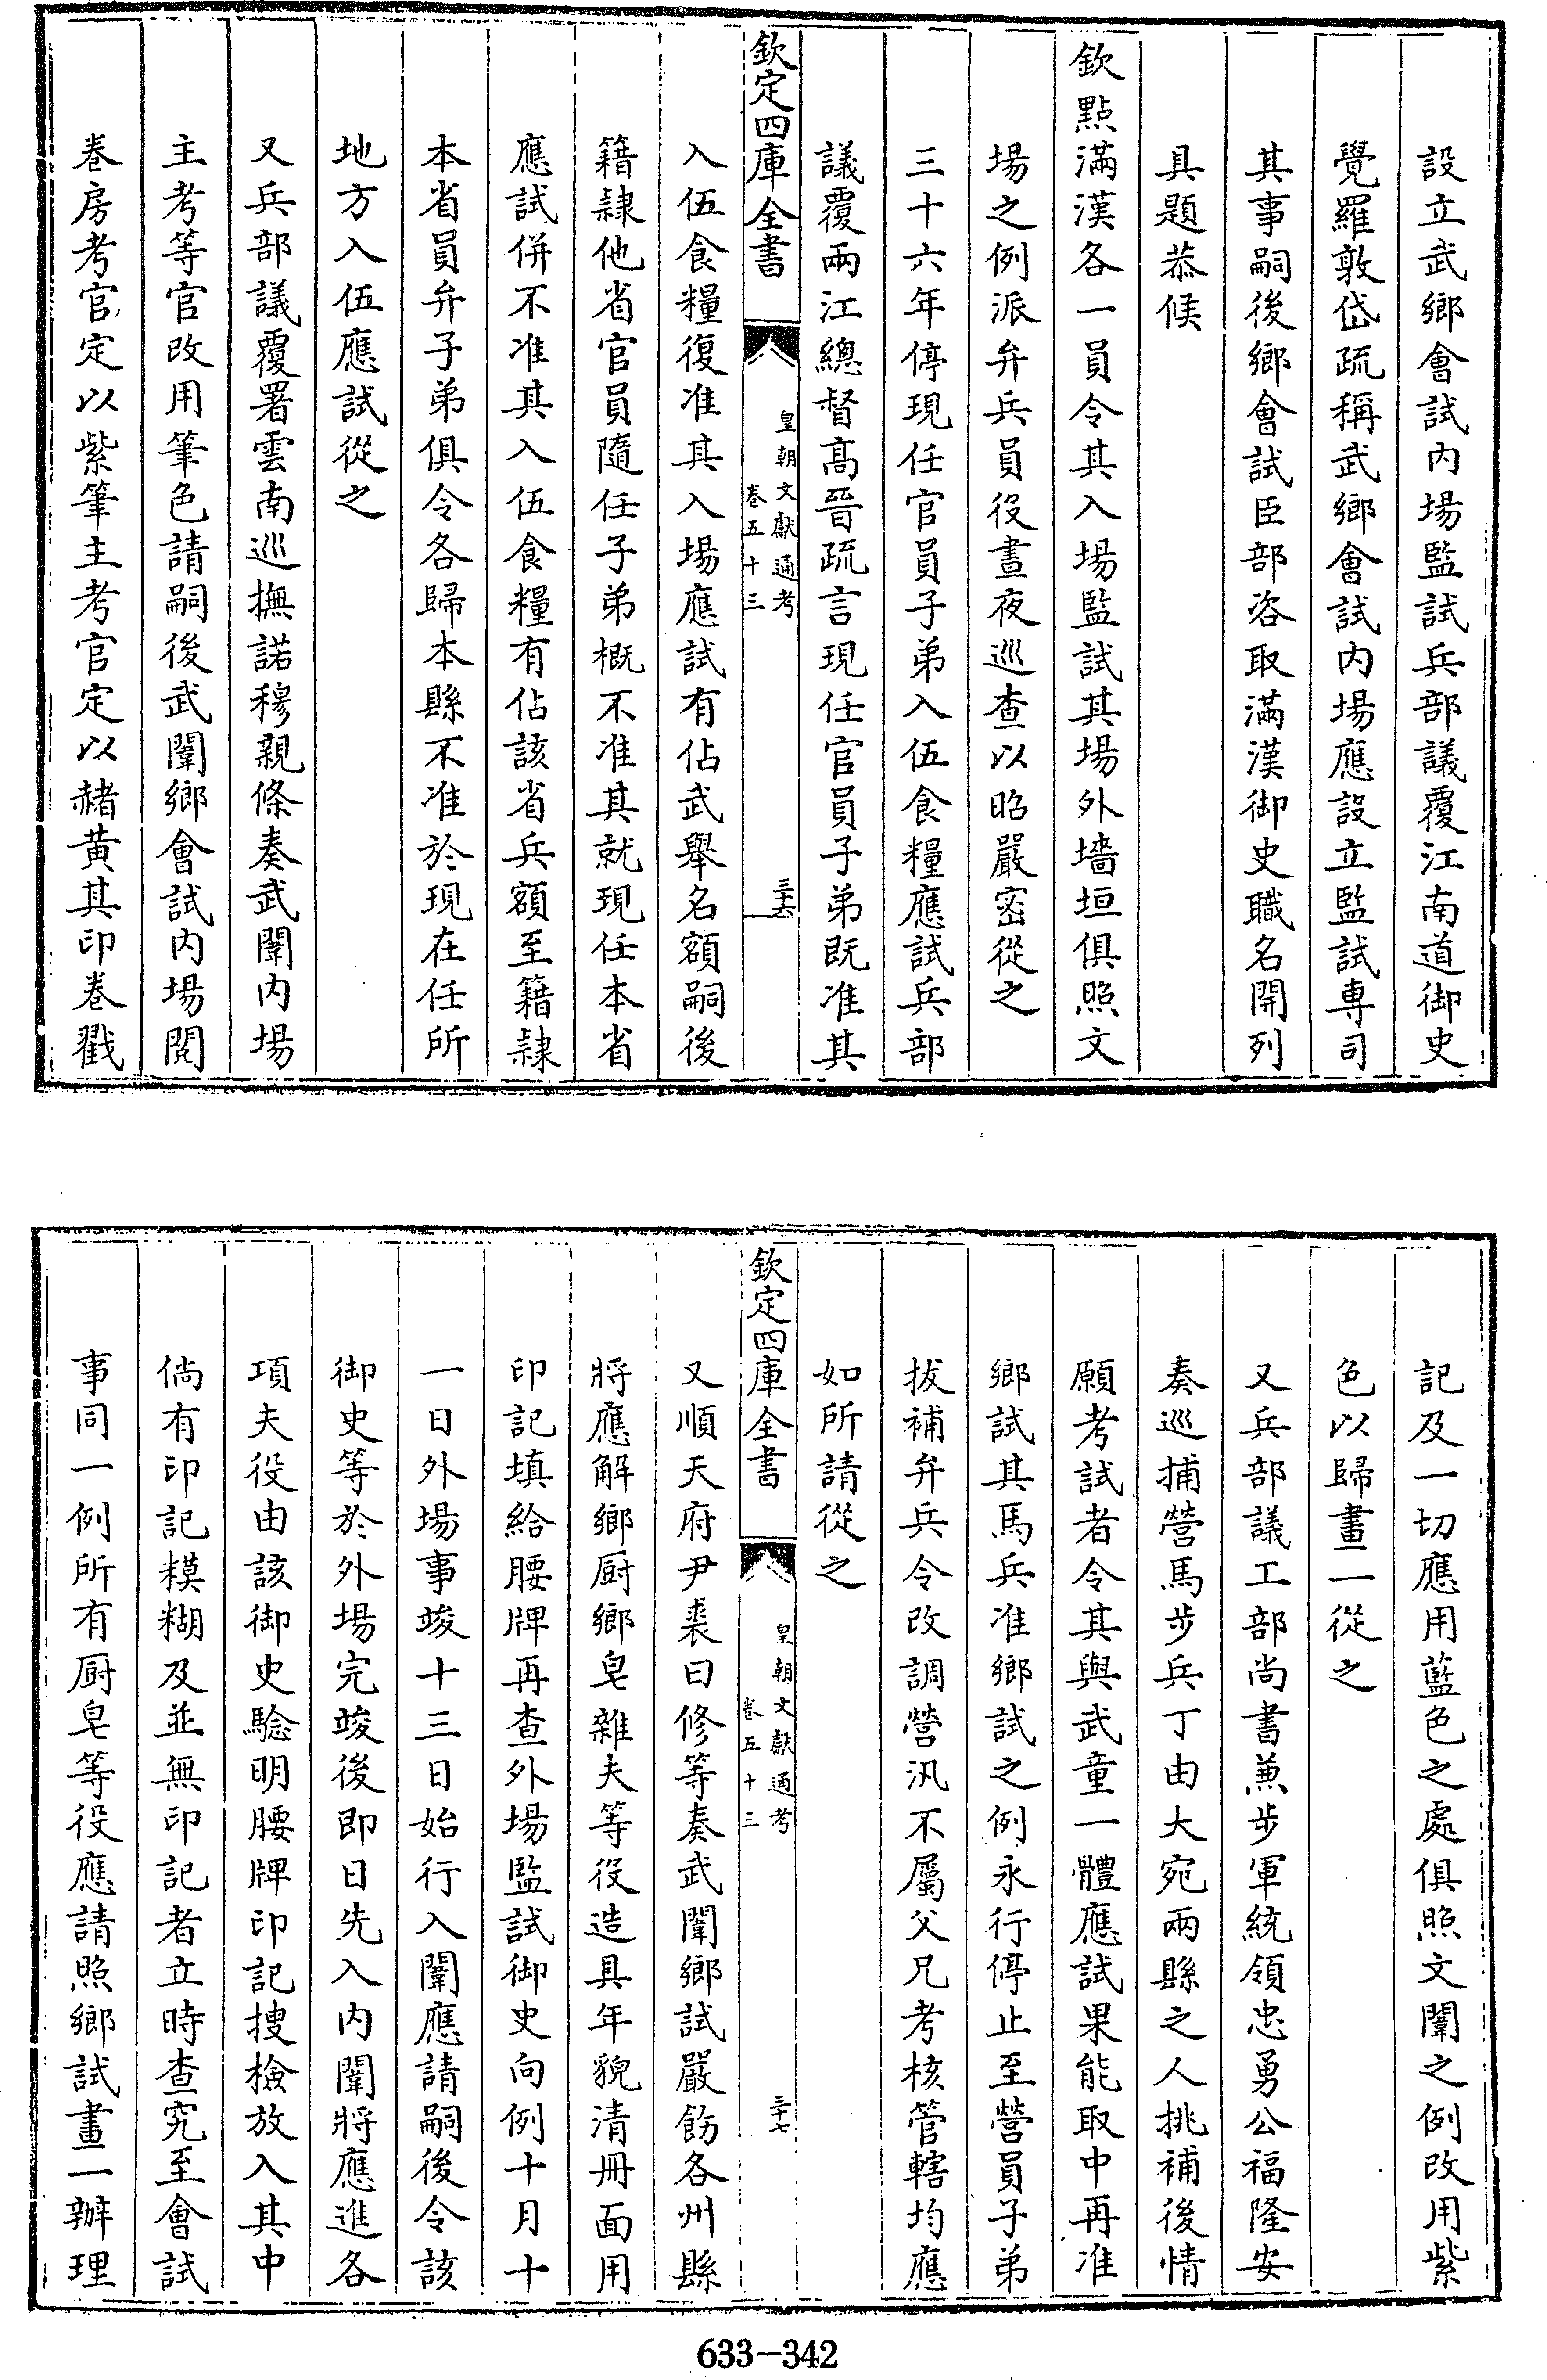 設立武鄉會試内場監試兵部議覆江南道御史
覺羅敦岱疏稱武鄉會試内場應設立監試専司
其事嗣後鄉會試臣部咨取滿漢御史職名開列
具題恭候
欽點滿漢各一員令其入場監試其場外墻垣俱照文
場之例派弁兵員役晝夜巡查以昭嚴宻從之
三十六年停現任官員子弟入伍食糧應試兵部
議覆兩江總督髙晉疏言現任官員子弟既准其
欽定四庫全書
皇朝文獻通考
卷五十三
三十六
入伍食糧復准其入場應試有佔武舉名額嗣後
籍隷他省官員隨任子弟概不准其就現任本省
應試併不准其入伍食糧有佔該省兵額至籍隷
本省員弁子弟俱令各歸本縣不准於現在任所
地方入伍應試從之
又兵部議覆署雲南巡撫諾穆親條奏武闈内場
主考等官改用筆色請嗣後武闈鄉會試内場閱
卷房考官定以紫筆主考官定以赭黄其印卷戳
記及一切應用藍色之處俱照文闈之例改用紫
色以歸畫一從之
又兵部議工部尚書兼步軍統領忠勇公福隆安
奏巡捕營馬步兵丁由大宛兩縣之人挑補後情
願考試者令其與武童一體應試果能取中再准
鄉試其馬兵准鄉試之例永行停止至營員子弟
拔補弁兵令改調營汛不屬父兄考核管轄均應
如所請從之
欽定四庫全書
皇朝文獻通考
卷五十三
三十七
又順天府尹裘曰修等奏武闈鄉試嚴飭各州縣
將應解鄉厨鄉皂雜夫等役造具年貌清冊面用
印記填給腰牌再查外場監試御史向例十月十
一日外場事竣十三日始行入闈應請嗣後令該
御史等於外場完竣後即日先入内闈將應進各
項夫役由該御史騐明腰牌印記搜檢放入其中
倘有印記糢糊及並無印記者立時查究至會試
事同一例所有厨皂等役應請照鄉試畫一辦理
633-342